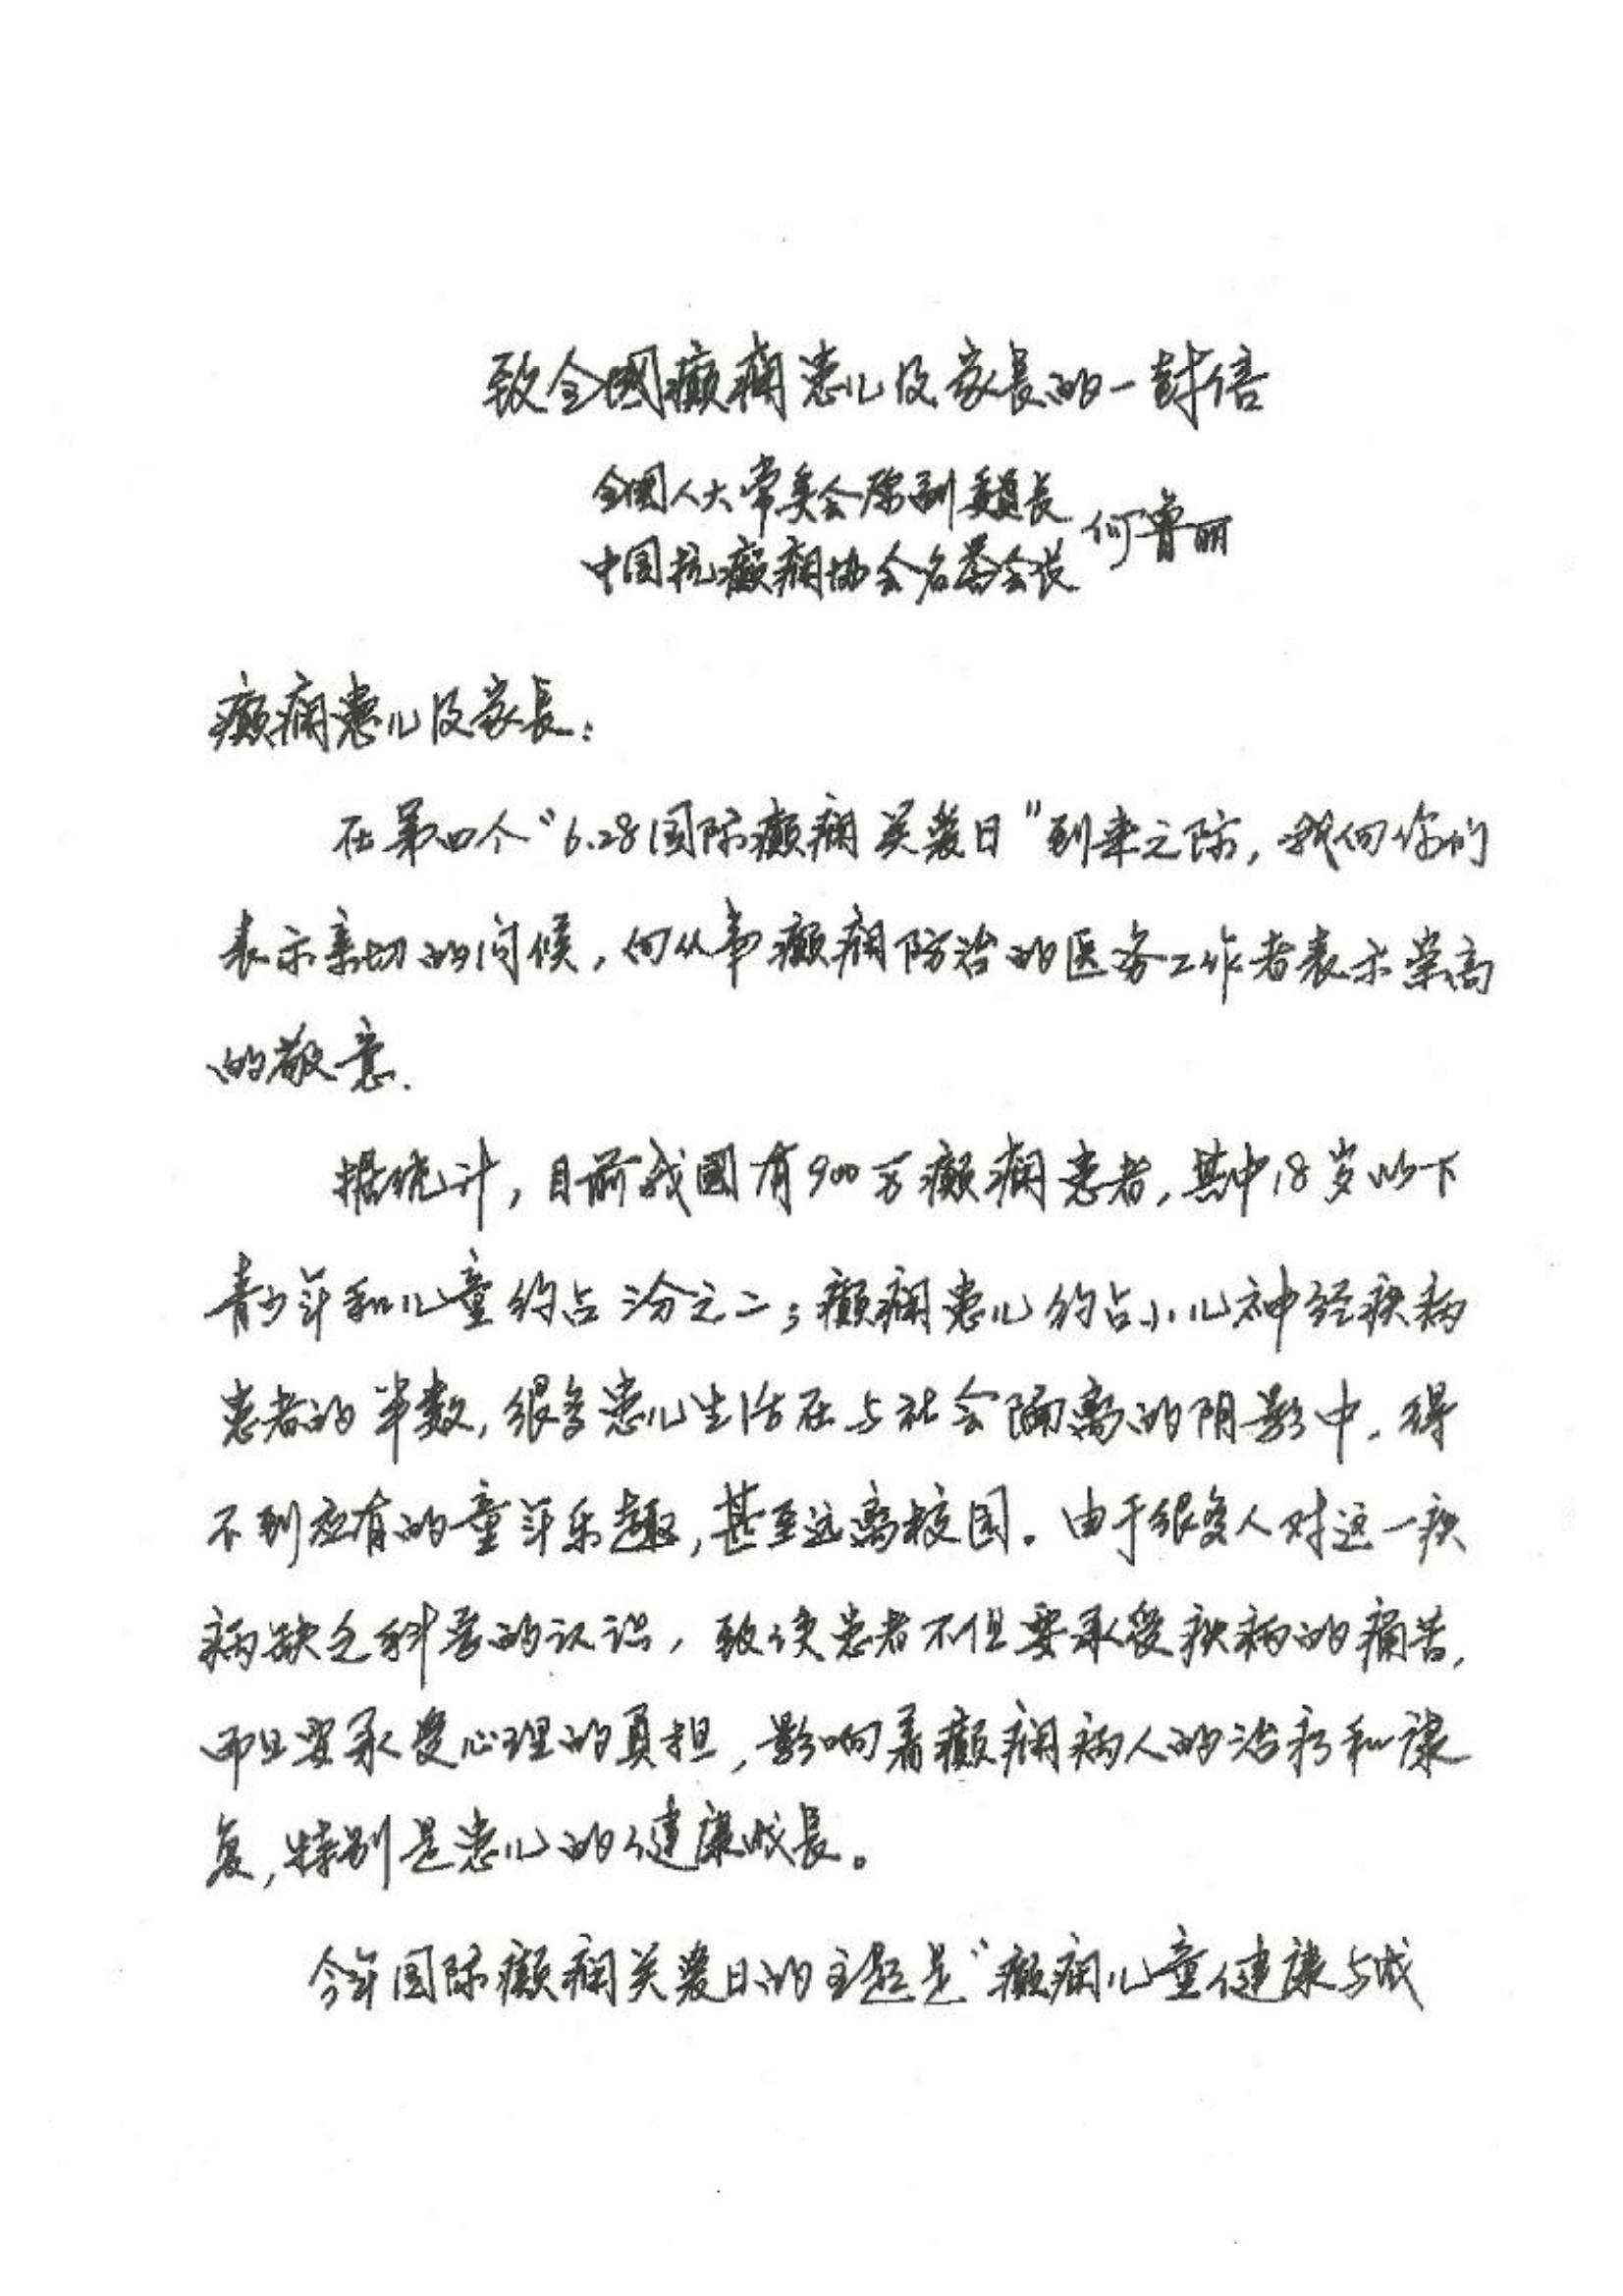 致全國癫痫患儿及家長的一封信
全國人大常委会原副委員長
中国抗癫痫协会名誉会长 何鲁丽
癫痫患儿及家長:
在第四个“6.28国际癫痫关爱日”到来之际,我向你们
表示亲切的问候,向从事癫痫防治的医务工作者表示崇高
的敬意.
据统计,目前我國有900万癫痫患者,其中18岁以下
青少年和儿童约占三分之二;癫痫患儿约占小儿神经疾病
患者的半数,很多患儿生活在与社会隔离的阴影中.得
不到应有的童年乐趣,甚至远离校园。由于很多人对这一疾
病缺乏科学的认识,致使患者不但要承受疾病的痛苦,
而且要承受心理的負担,影响着癫痫病人的治疗和康
复,特别是患儿的健康成長。
今年国际癫痫关爱日的主题是“癫痫儿童健康与成